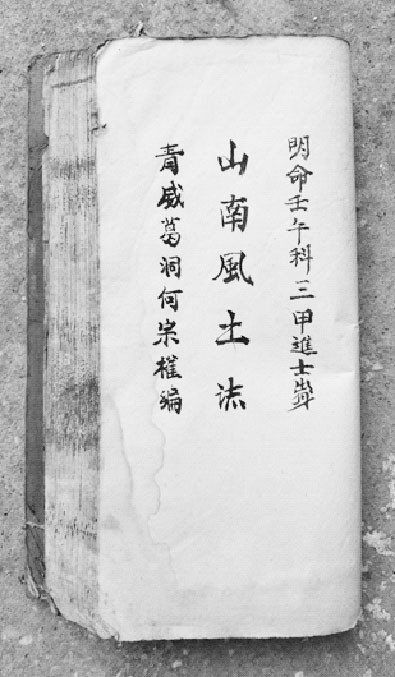 明命壬午科三甲進士
山南風土誌
青威葛洞何宗權編